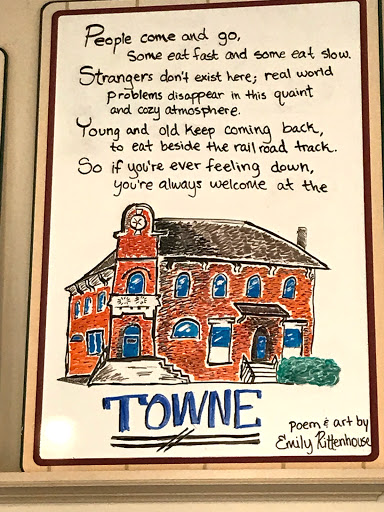 People come and go,
Some eat fast and some eat slow.
Strangers don't exist here; real world
problems disappear in this quaint
and cozy atmosphere.
Young and old keep coming back,
to eat beside the railroad track.
So if you're ever feeling down,
you're always welcome at the
TOWNE
poem & art by
Emily Rittenhouse